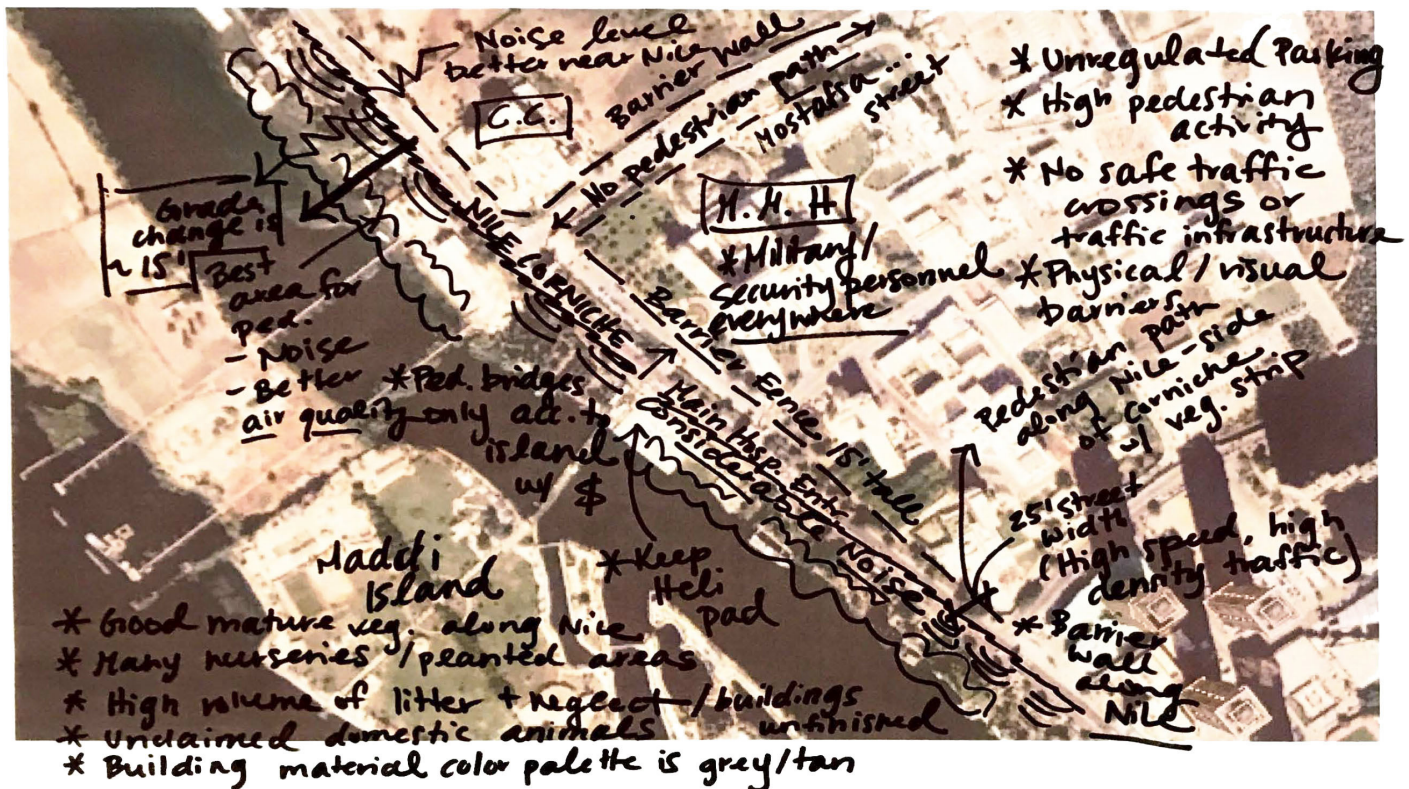 Noise level
better near Nile
Barrier Wall
C.C.
No pedestrian path
Mostafsa...
street
* Unregulated Parking
* High pedestrian
activity
* No safe traffic
crossings or
traffic infrastructure
* Physical/visual
barriers
Grade
change is
~ 15'
Best
area for
ped.
- Noise
- Better
air quality
NILE CORNICHE
M.M.H
* Military/
security personnel
everywhere
Barrier Fence 15' tall
* Ped. bridges
only acc. to
island
w/ $
Main Hosp. Entr.
Considerable Noise
Pedestrian path
along Nile-side
of corniche
w/ veg. strip
25' street
width
(High speed, high
density traffic)
* Keep
Heli
pad
* Barrier
wall
along
Nile
Maddi
Island
* Good mature veg. along Nile
* Many nurseries /planted areas
* High volume of litter + neglect/buildings
unfinished
* Unclaimed domestic animals
* Building material color palette is grey/tan